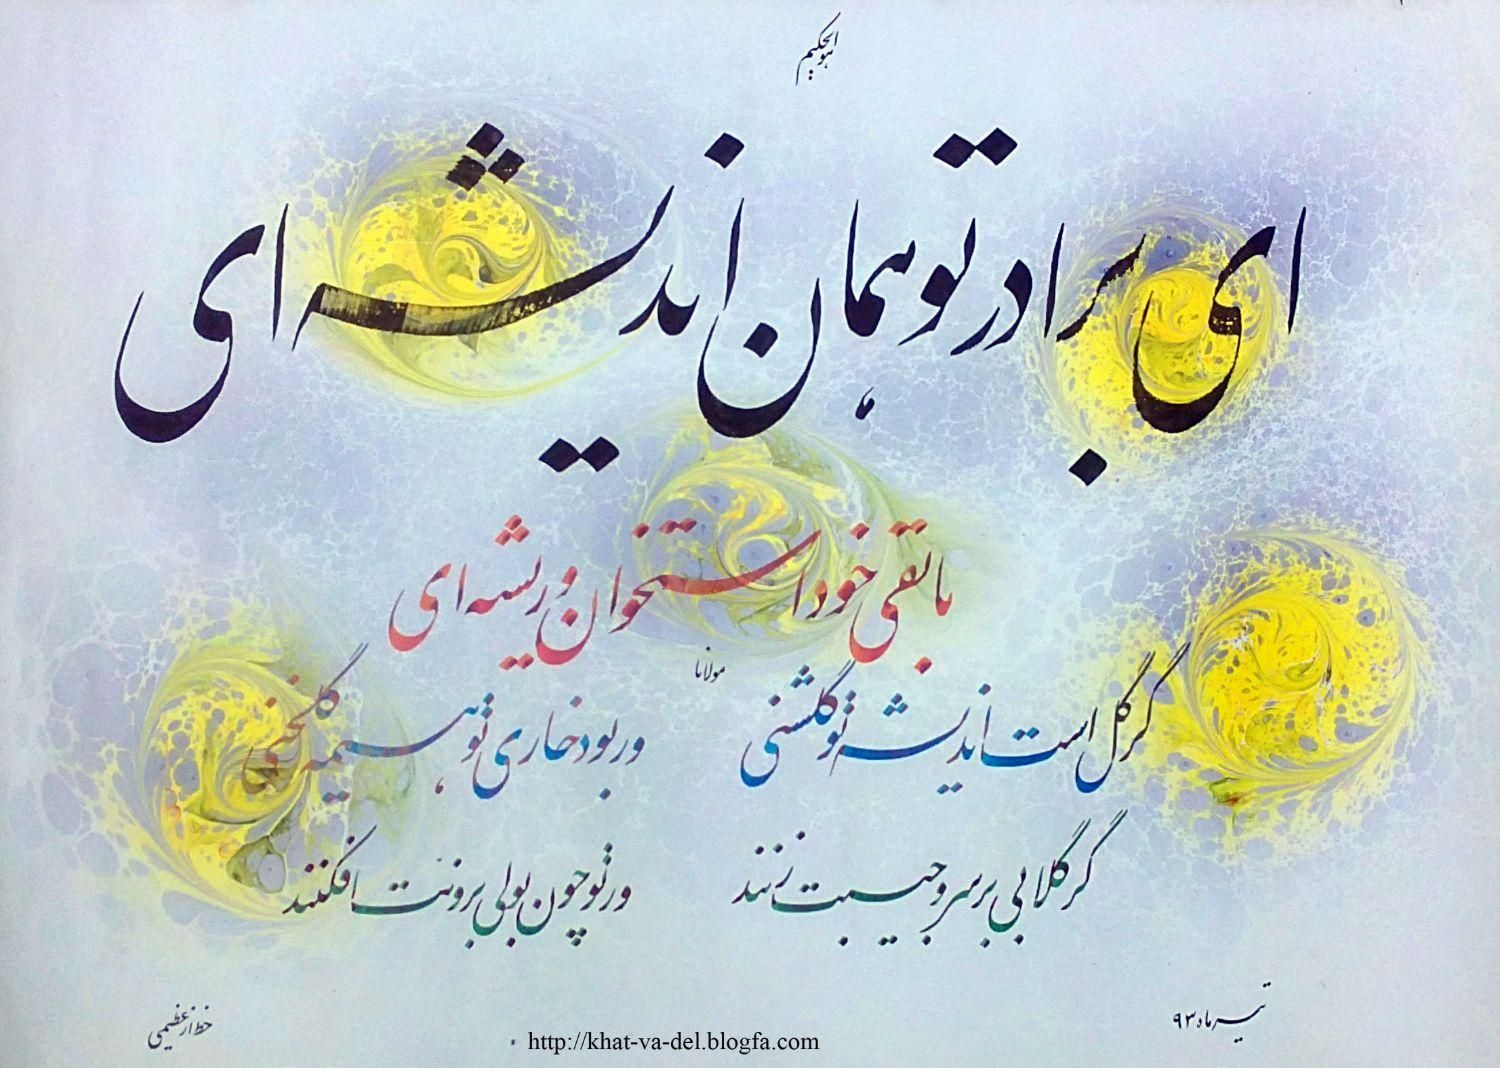 هوالحکیم
ای برادر تو همان اندیشه‌ای
مابقی خود استخوان و ریشه‌ای
مولانا
گر گل است اندیشه تو گلشنی ور بود خاری تو هیمه گلخنی
گر گلابی بر سر و جیبت زنند ور تو چون بولی برونت افکنند
تیرماه ۹۳
خط از عظیمی
http://khat-va-del.blogfa.com